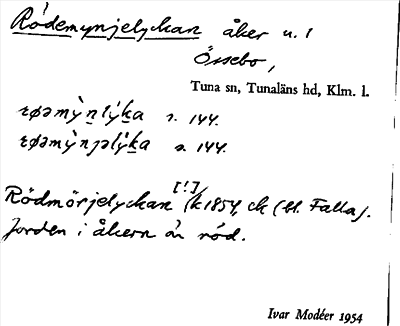 Rödemynjelyckan åker u. 1
Össebo,
Tuna sn, Tunaläns hd, Klm. l.
røəmỳn̲lýk̲a s. 144.
røəmỳnjəlýk̲a s. 144.
[!]
Rödmörjelyckan (k 1854, ck (bl. Falla).
Jorden i åkern är röd.
Ivar Modéer 1954